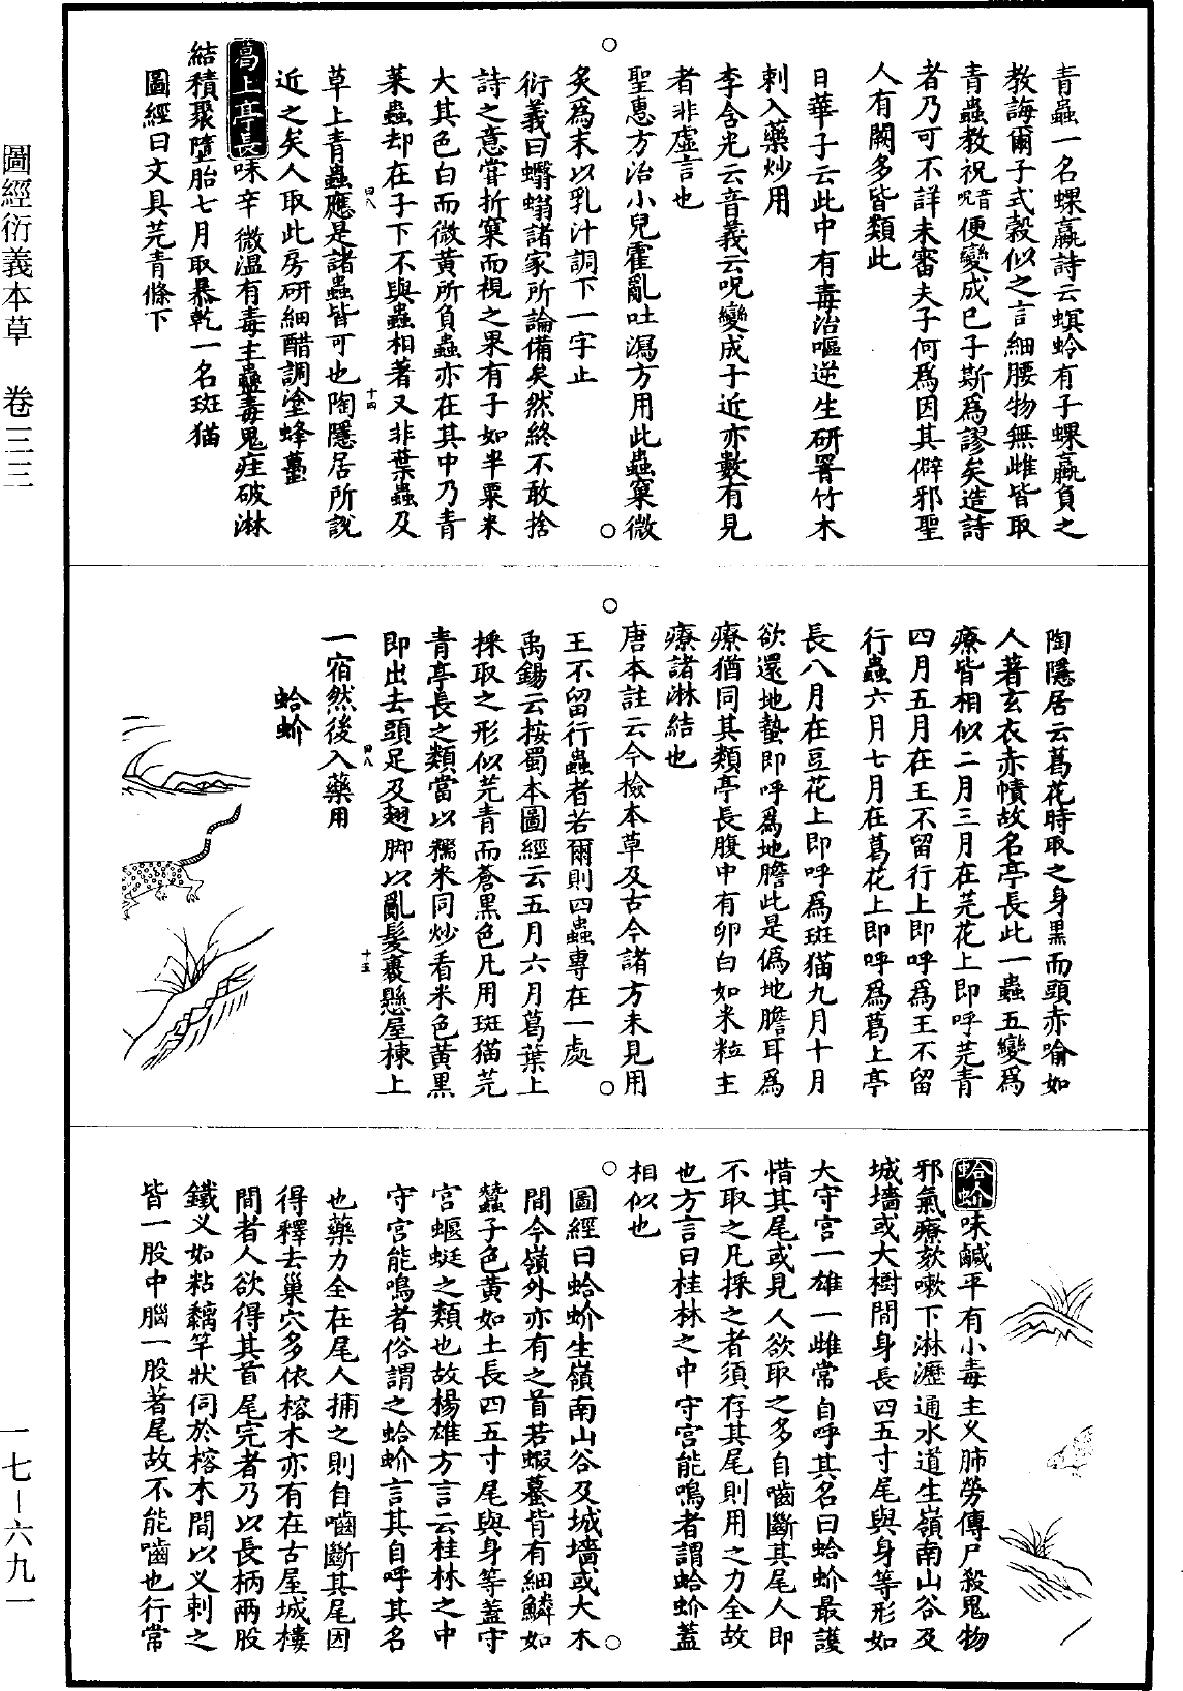 青蟲一名蜾蠃詩云螟蛉有子蜾蠃負之
教誨爾子式穀似之言細腰物無雌皆取
青蟲教祝音呪便變成已子斯爲謬矣造詩
者乃可不詳未審夫子何爲因其僻邪聖
人有闕多皆類此
日華子云此中有毒治嘔逆生研署竹木
刺入藥炒用
李含光云音義云呪變成子近亦數有見
者非虛言也
聖惠方治小兒霍亂吐瀉方用此蟲窠微
炙爲末以乳汁調下一字止
衍義曰蠮螉諸家所論備矣然終不敢捨
詩之意嘗折窠而視之果有子如半粟米
大其色白而微黃所負蟲亦在其中乃青
菜蟲却在子下不與蟲相著又非葉蟲及
四八
十四
草上青蟲應是諸蟲皆可也陶隱居所說
近之矣人取此房研細醋調塗蜂蠆
葛上亭長味辛微溫有毒主蠱毒鬼疰破淋
結積聚墮胎七月取暴乾一名斑猫
圖經曰文具芫青條下
陶隱居云葛花時取之身黑而頭赤喻如
人著玄衣赤幘故名亭長此一蟲五變爲
療皆相似二月三月在芫花上即呼芫青
四月五月在王不留行上即呼爲王不留
行蟲六月七月在葛花上即呼爲葛上亭
長八月在豆花上即呼爲斑猫九月十月
欲還地蟄即呼爲地膽此是僞地膽耳爲
療猶同其類亭長腹中有卵白如米粒主
療諸淋結也
唐本註云今檢本草及古今諸方未見用
王不留行蟲者若爾則四蟲專在一處
禹錫云按蜀本圖經云五月六月葛葉上
採取之形似芫青而蒼黑色凡用斑猫芫
青亭長之類當以糯米同炒看米色黃黑
即出去頭足及翅脚以亂髮裹懸屋棟上
四八
十五
一宿然後入藥用
蛤蚧
蛤蚧味鹹平有小毒主乂肺勞傳尸殺鬼物
邪氣療欬嗽下淋瀝通水道生嶺南山谷及
城墻或大樹間身長四五寸尾與身等形如
大守宮一雄一雌常自呼其名曰蛤蚧最護
惜其尾或見人欲取之多自嚙斷其尾人即
不取之凡採之者須存其尾則用之力全故
也方言曰桂林之中守宮能鳴者謂蛤蚧蓋
相似也
圖經曰蛤蚧生嶺南山谷及城墻或大木
間今嶺外亦有之首若蝦蟇背有細鱗如
蠶子色黃如土長四五寸尾與身等蓋守
宮蝘蜓之類也故楊雄方言云桂林之中
守宮能鳴者俗謂之蛤蚧言其自呼其名
也藥力全在尾人捕之則自嚙斷其尾因
得釋去巢穴多依榕木亦有在古屋城樓
間者人欲得其首尾完者乃以長柄兩股
鐵乂如粘黐竿狀伺於榕木間以乂刺之
皆一股中腦一股著尾故不能嚙也行常
圖經衍義本草 卷三三
一七—六九一